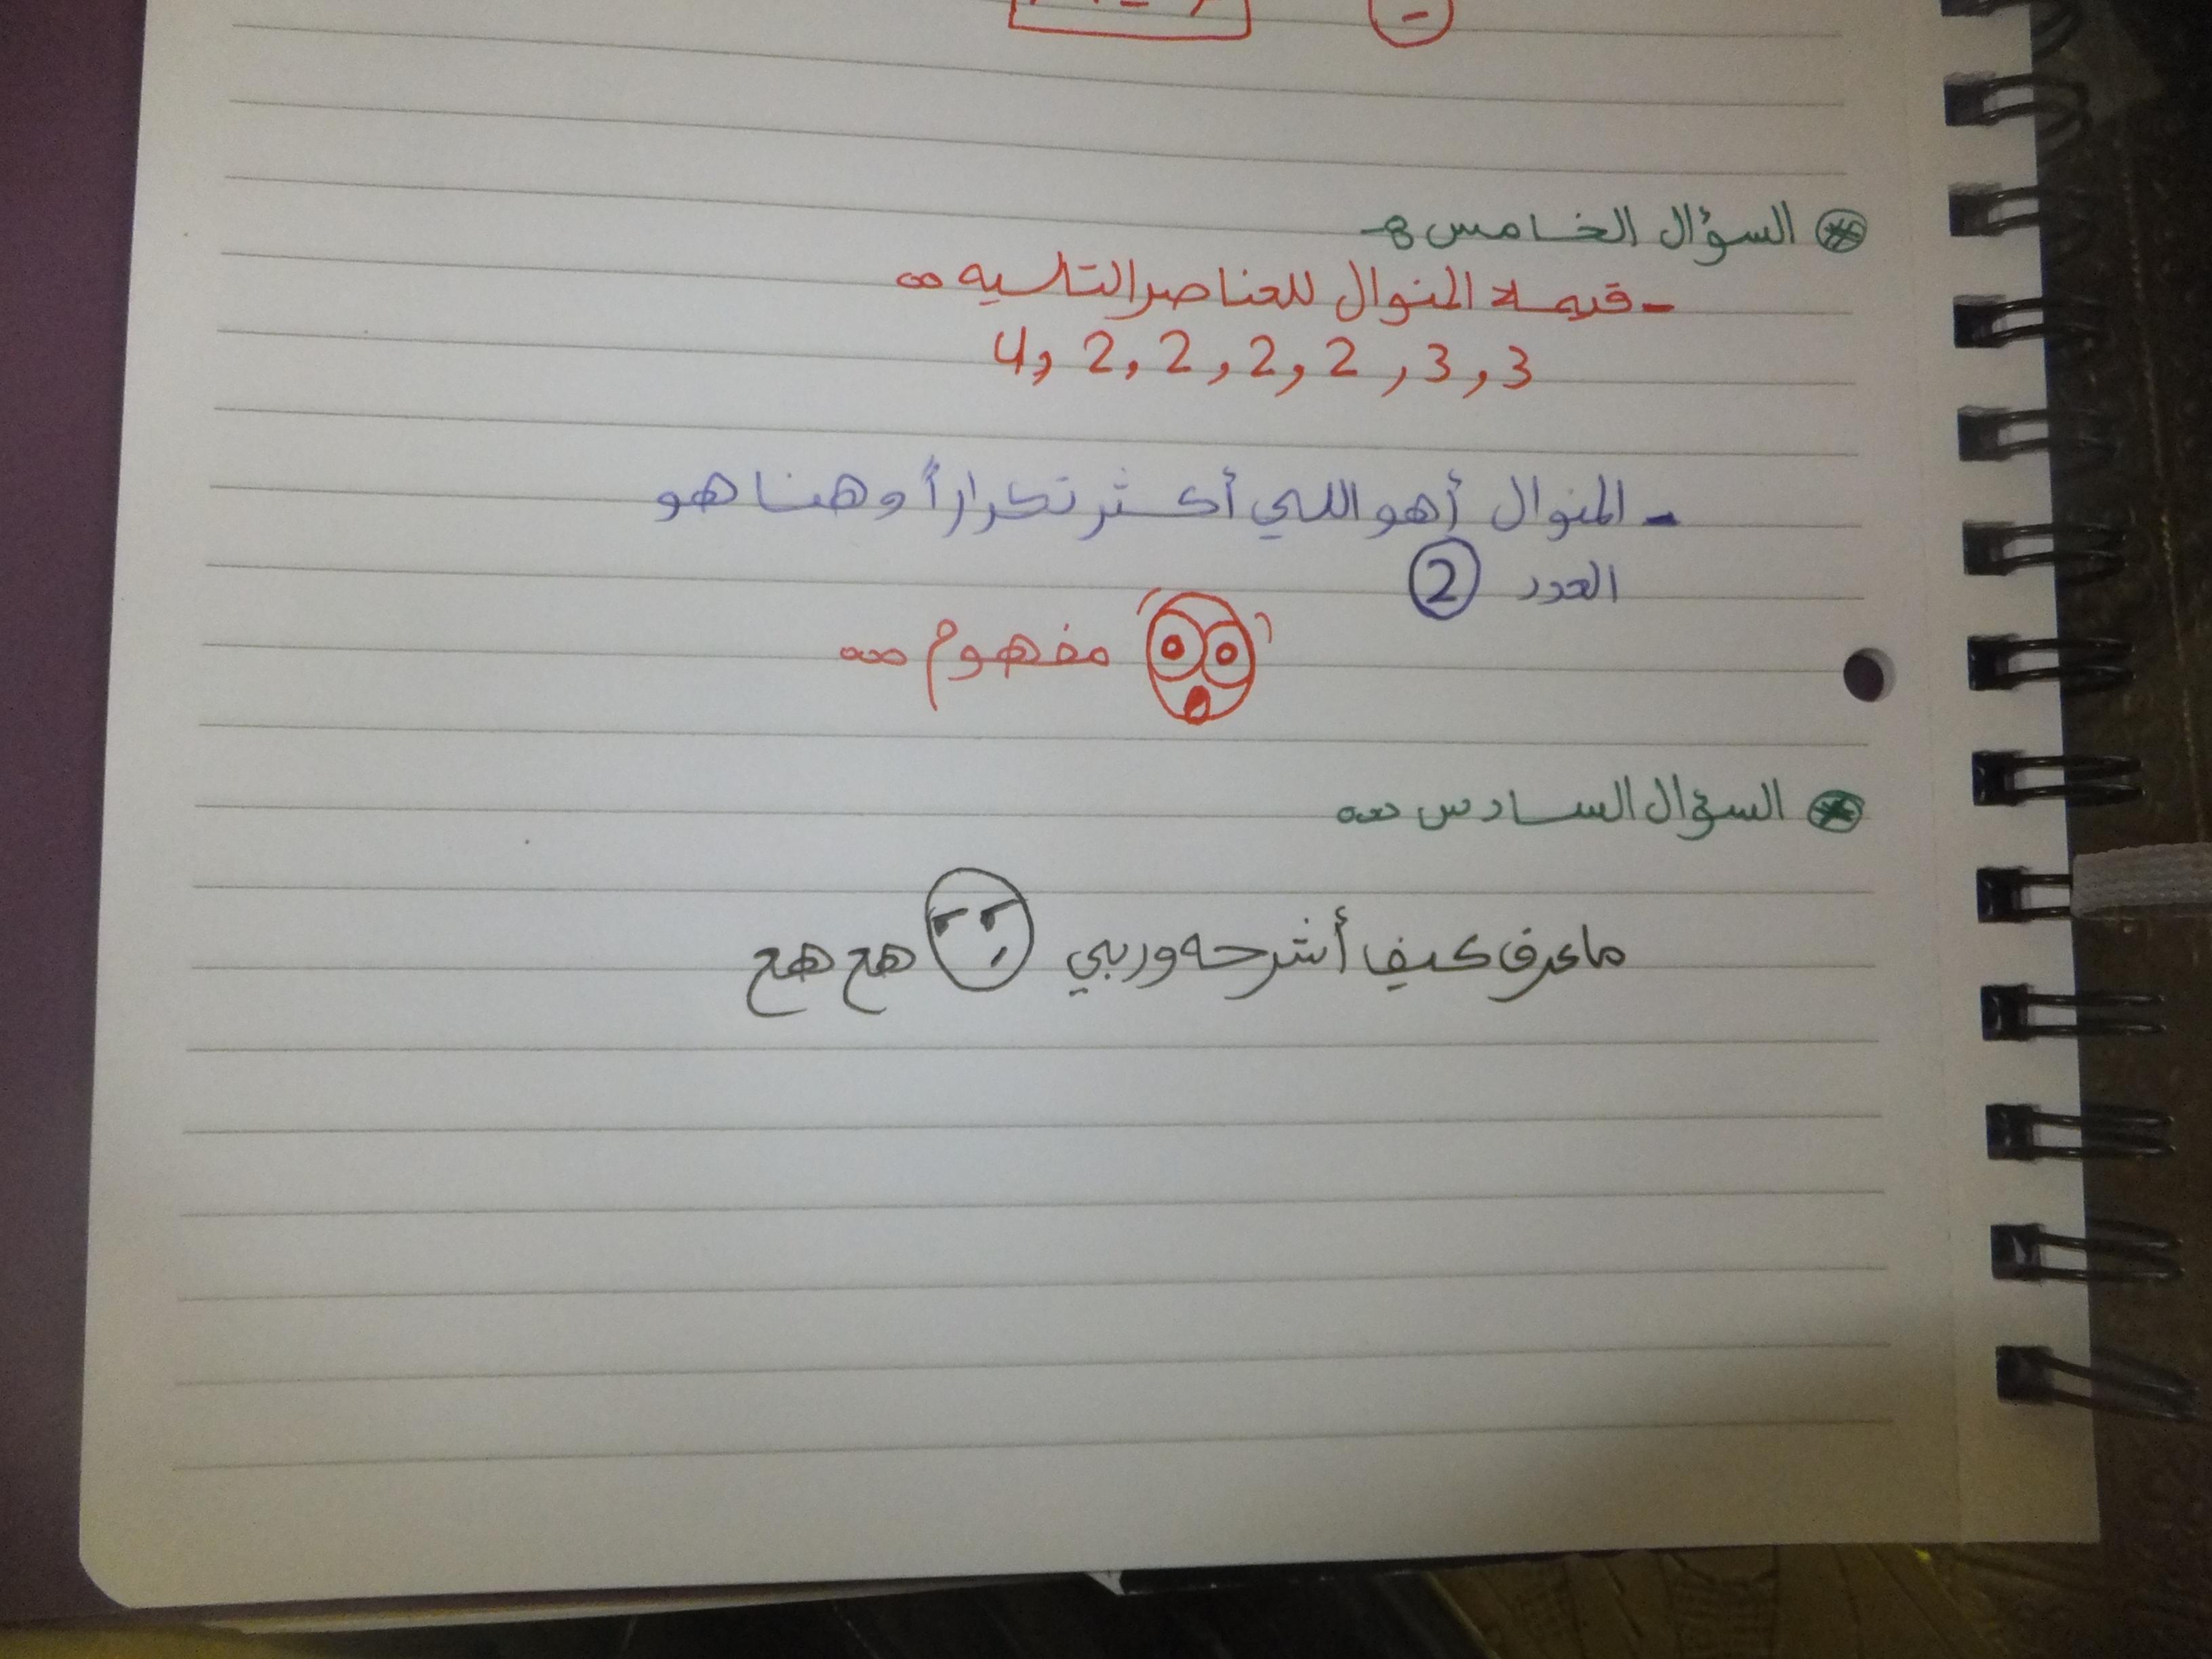 السؤال الخامس :-
- قيمة المنوال للعناصر التاليه :
4, 2, 2, 2, 2, 3, 3
- المنوال أهو اللي أكثر تكراراً وهنا هو
العدد 2
مفهوم
السؤال السادس
ماعرف كيف أشرحه وربي هع هع